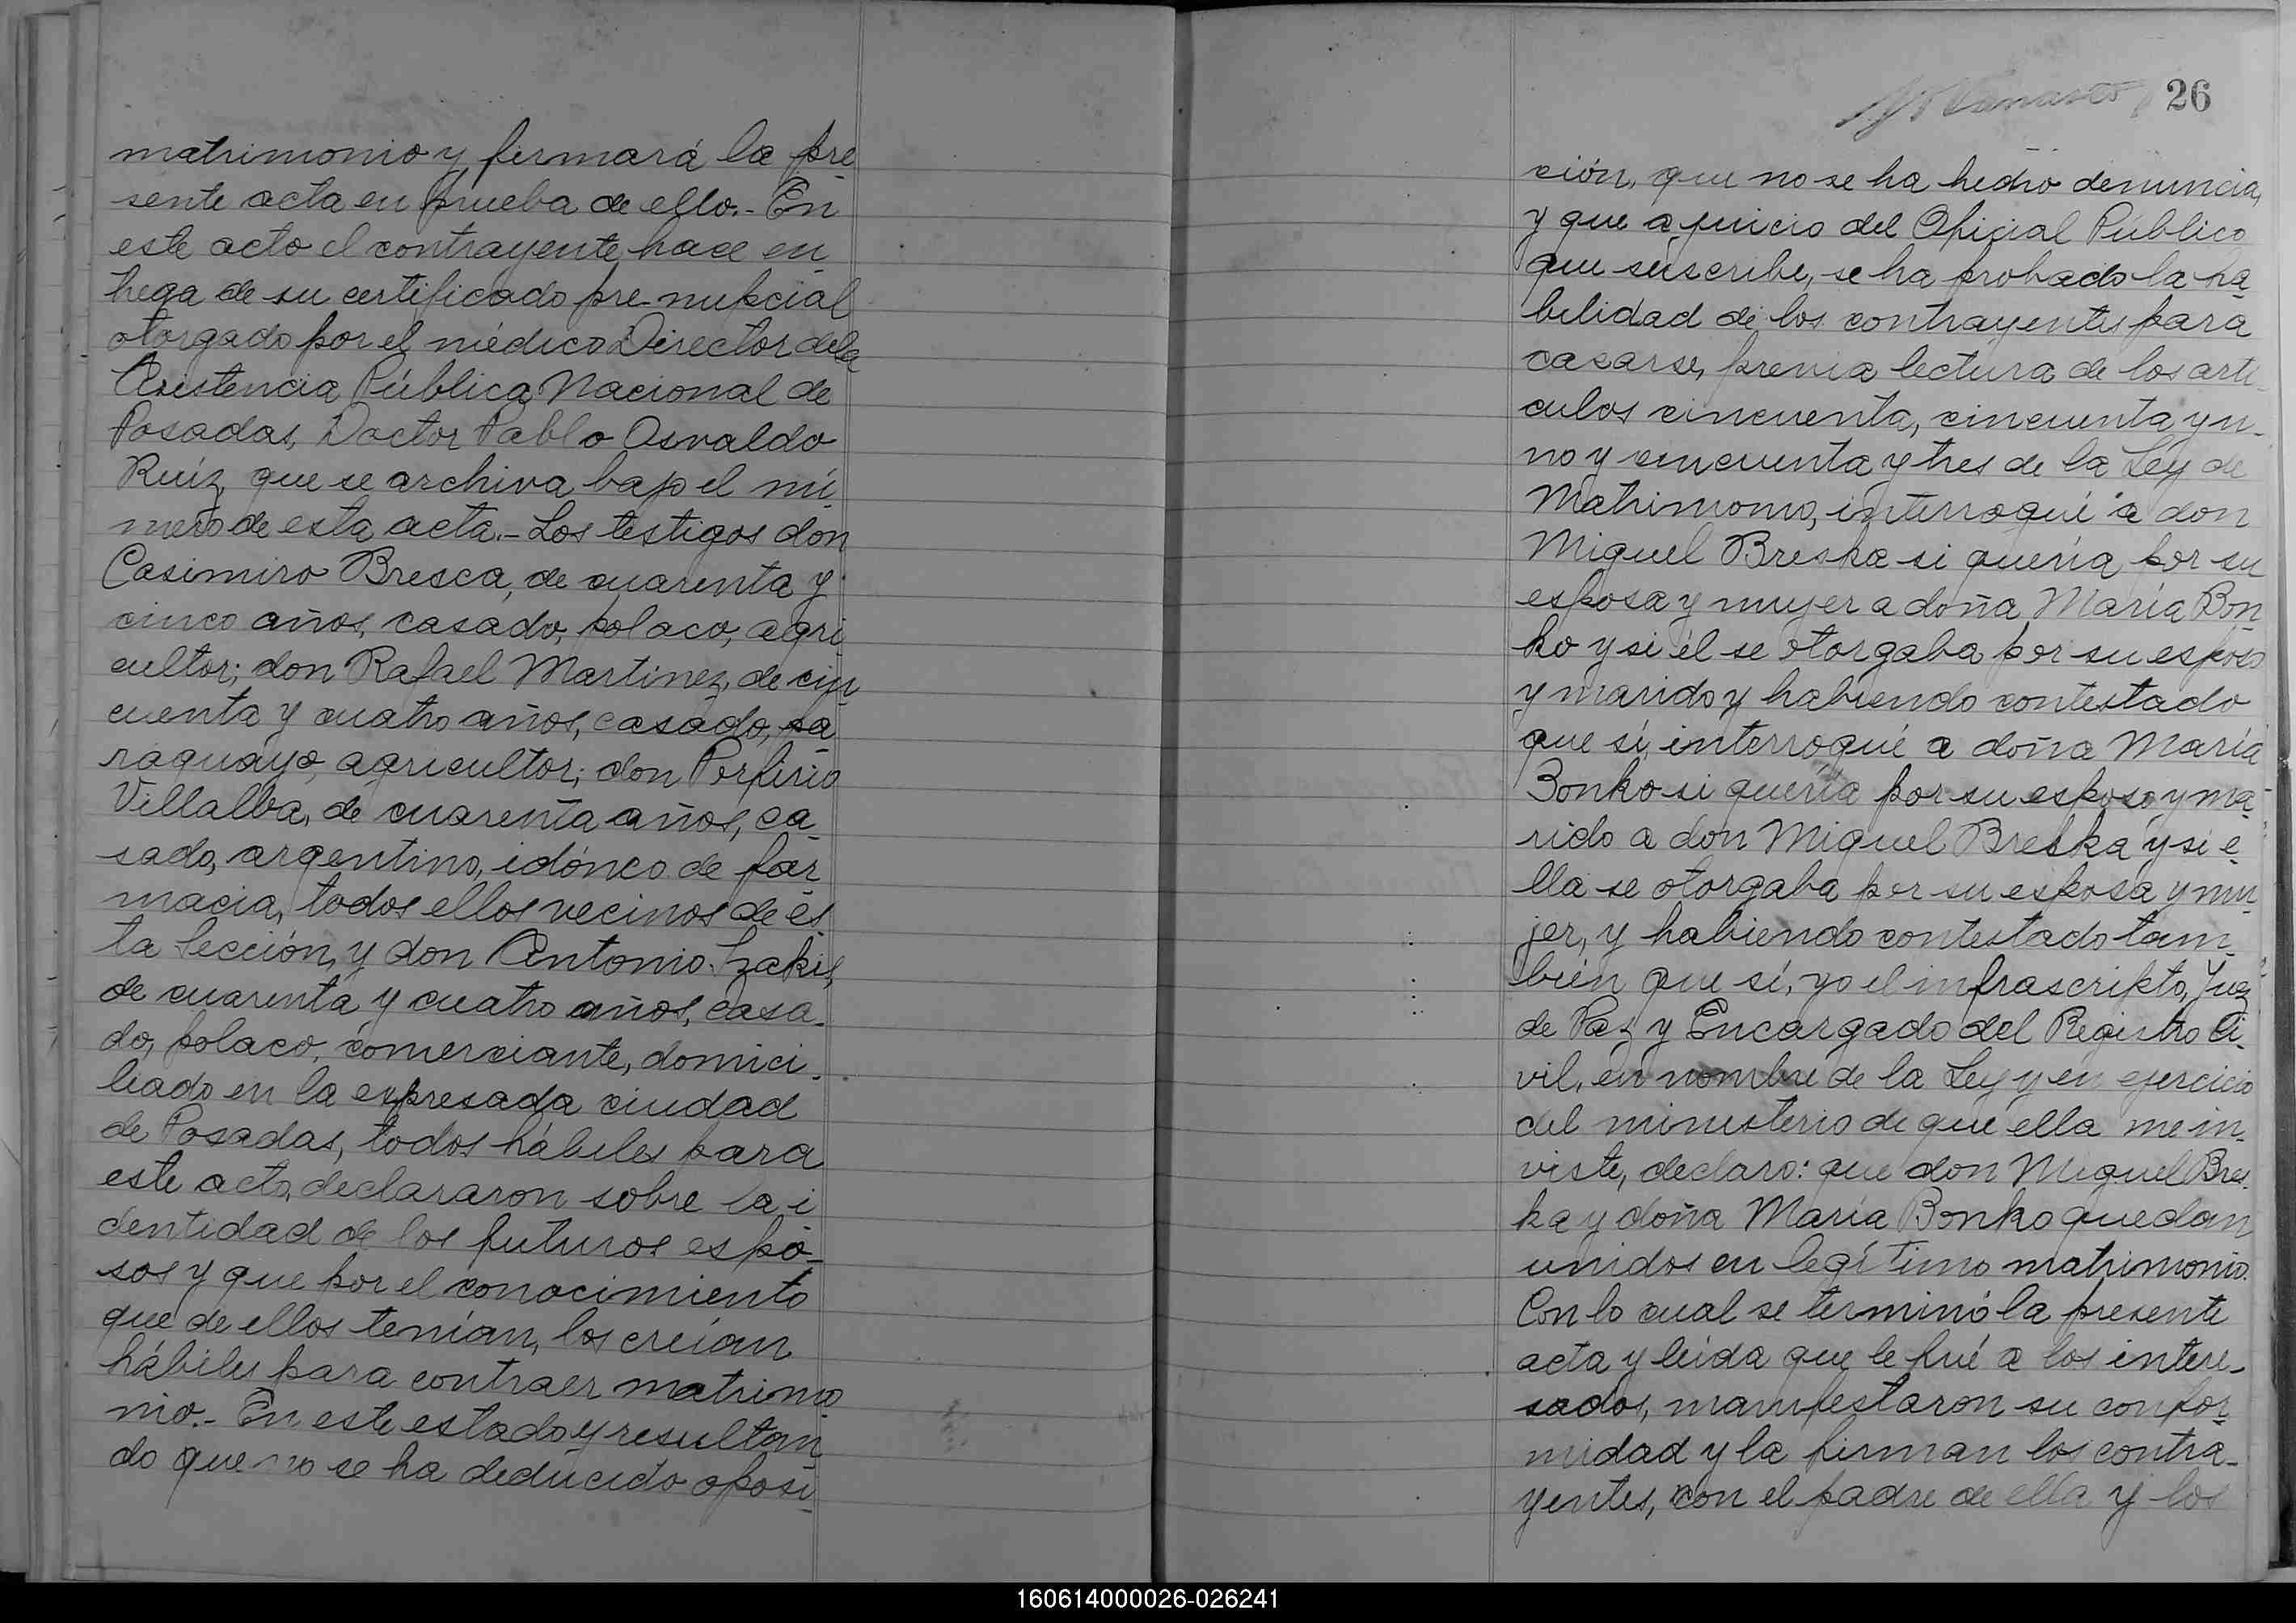 matrimonio y firmará la pre
sente acta en prueba de ello.- En
este acto el contrayente hace en
trega de su certificado pre-nupcial
otorgado por el médico Director dela
Asistencia Pública Nacional de
Posadas, Doctor Pablo Osvaldo
Ruíz, que se archiva bajo el nú
mero de esta acta.- Los testigos don
Casimiro Bresca, de cuarenta y
cinco años, casado, polaco, agri
cultor; don Rafael Martínez, de cin
cuenta y cuatro años, casado, pa
raguayo, agricultor; don Porfirio
Villalba, de cuarenta años, ca
sado, argentino, idóneo de far
macia, todos ellos vecinos de es
ta Sección, y don Antonio
de cuarenta y cuatro años, casa-
do, polaco, comerciante, domici-
liado en la expresada ciudad
de Posadas, todos hábiles para
este acto, declararon sobre la i
dentidad de los futuros espo-
sos y que por el conocimiento
que de ellos tenían, los creían
hábiles para contraer matrimo
nio.- En este estado y resultan
do que no se ha deducido oposi
26
ción, que no se ha hecho denuncia,
y que a juicio del Oficial Público
que suscribe, se ha probado la ha
bilidad de los contrayentes para
casarse, previa lectura de los artí-
culos cincuenta, cincuenta y u-
no y cincuenta y tres de la Ley de
Matrimonio, interrogué a don
Miguel Breska si quería por su
esposa y mujer a doña María Bon
ko y si él se otorgaba por su esposo
y marido y habiendo contestado
que sí, interrogué a doña María
Bonko si quería por su esposo y ma
rido a don Miguel Breska y si e-
lla se otorgaba por su esposa y mu
jer, y habiendo contestado tam
bién que sí, yo el infrascripto, Juez
de Paz y Encargado del Registro Ci-
vil, en nombre de la Ley y en ejercicio
del ministerio de que ella me in-
viste, declaro: que don Miguel Bres
ka y doña María Bonko quedan
unidos en legítimo matrimonio.
Con lo cual se terminó la presente
acta y leída que le fué a los intere-
sados, manifestaron su confor
midad y la firman los contra-
yentes, con el padre de ella y los
160614000026-026241